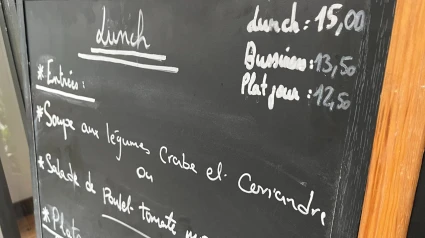 Lunch
Lunch: 15,00
Business: 13,50
Plat jour: 12,50
* Entrées:
* Soupe aux légumes Crabe et Corriandre
ou
* Salade de Poulet tomate
* Plats